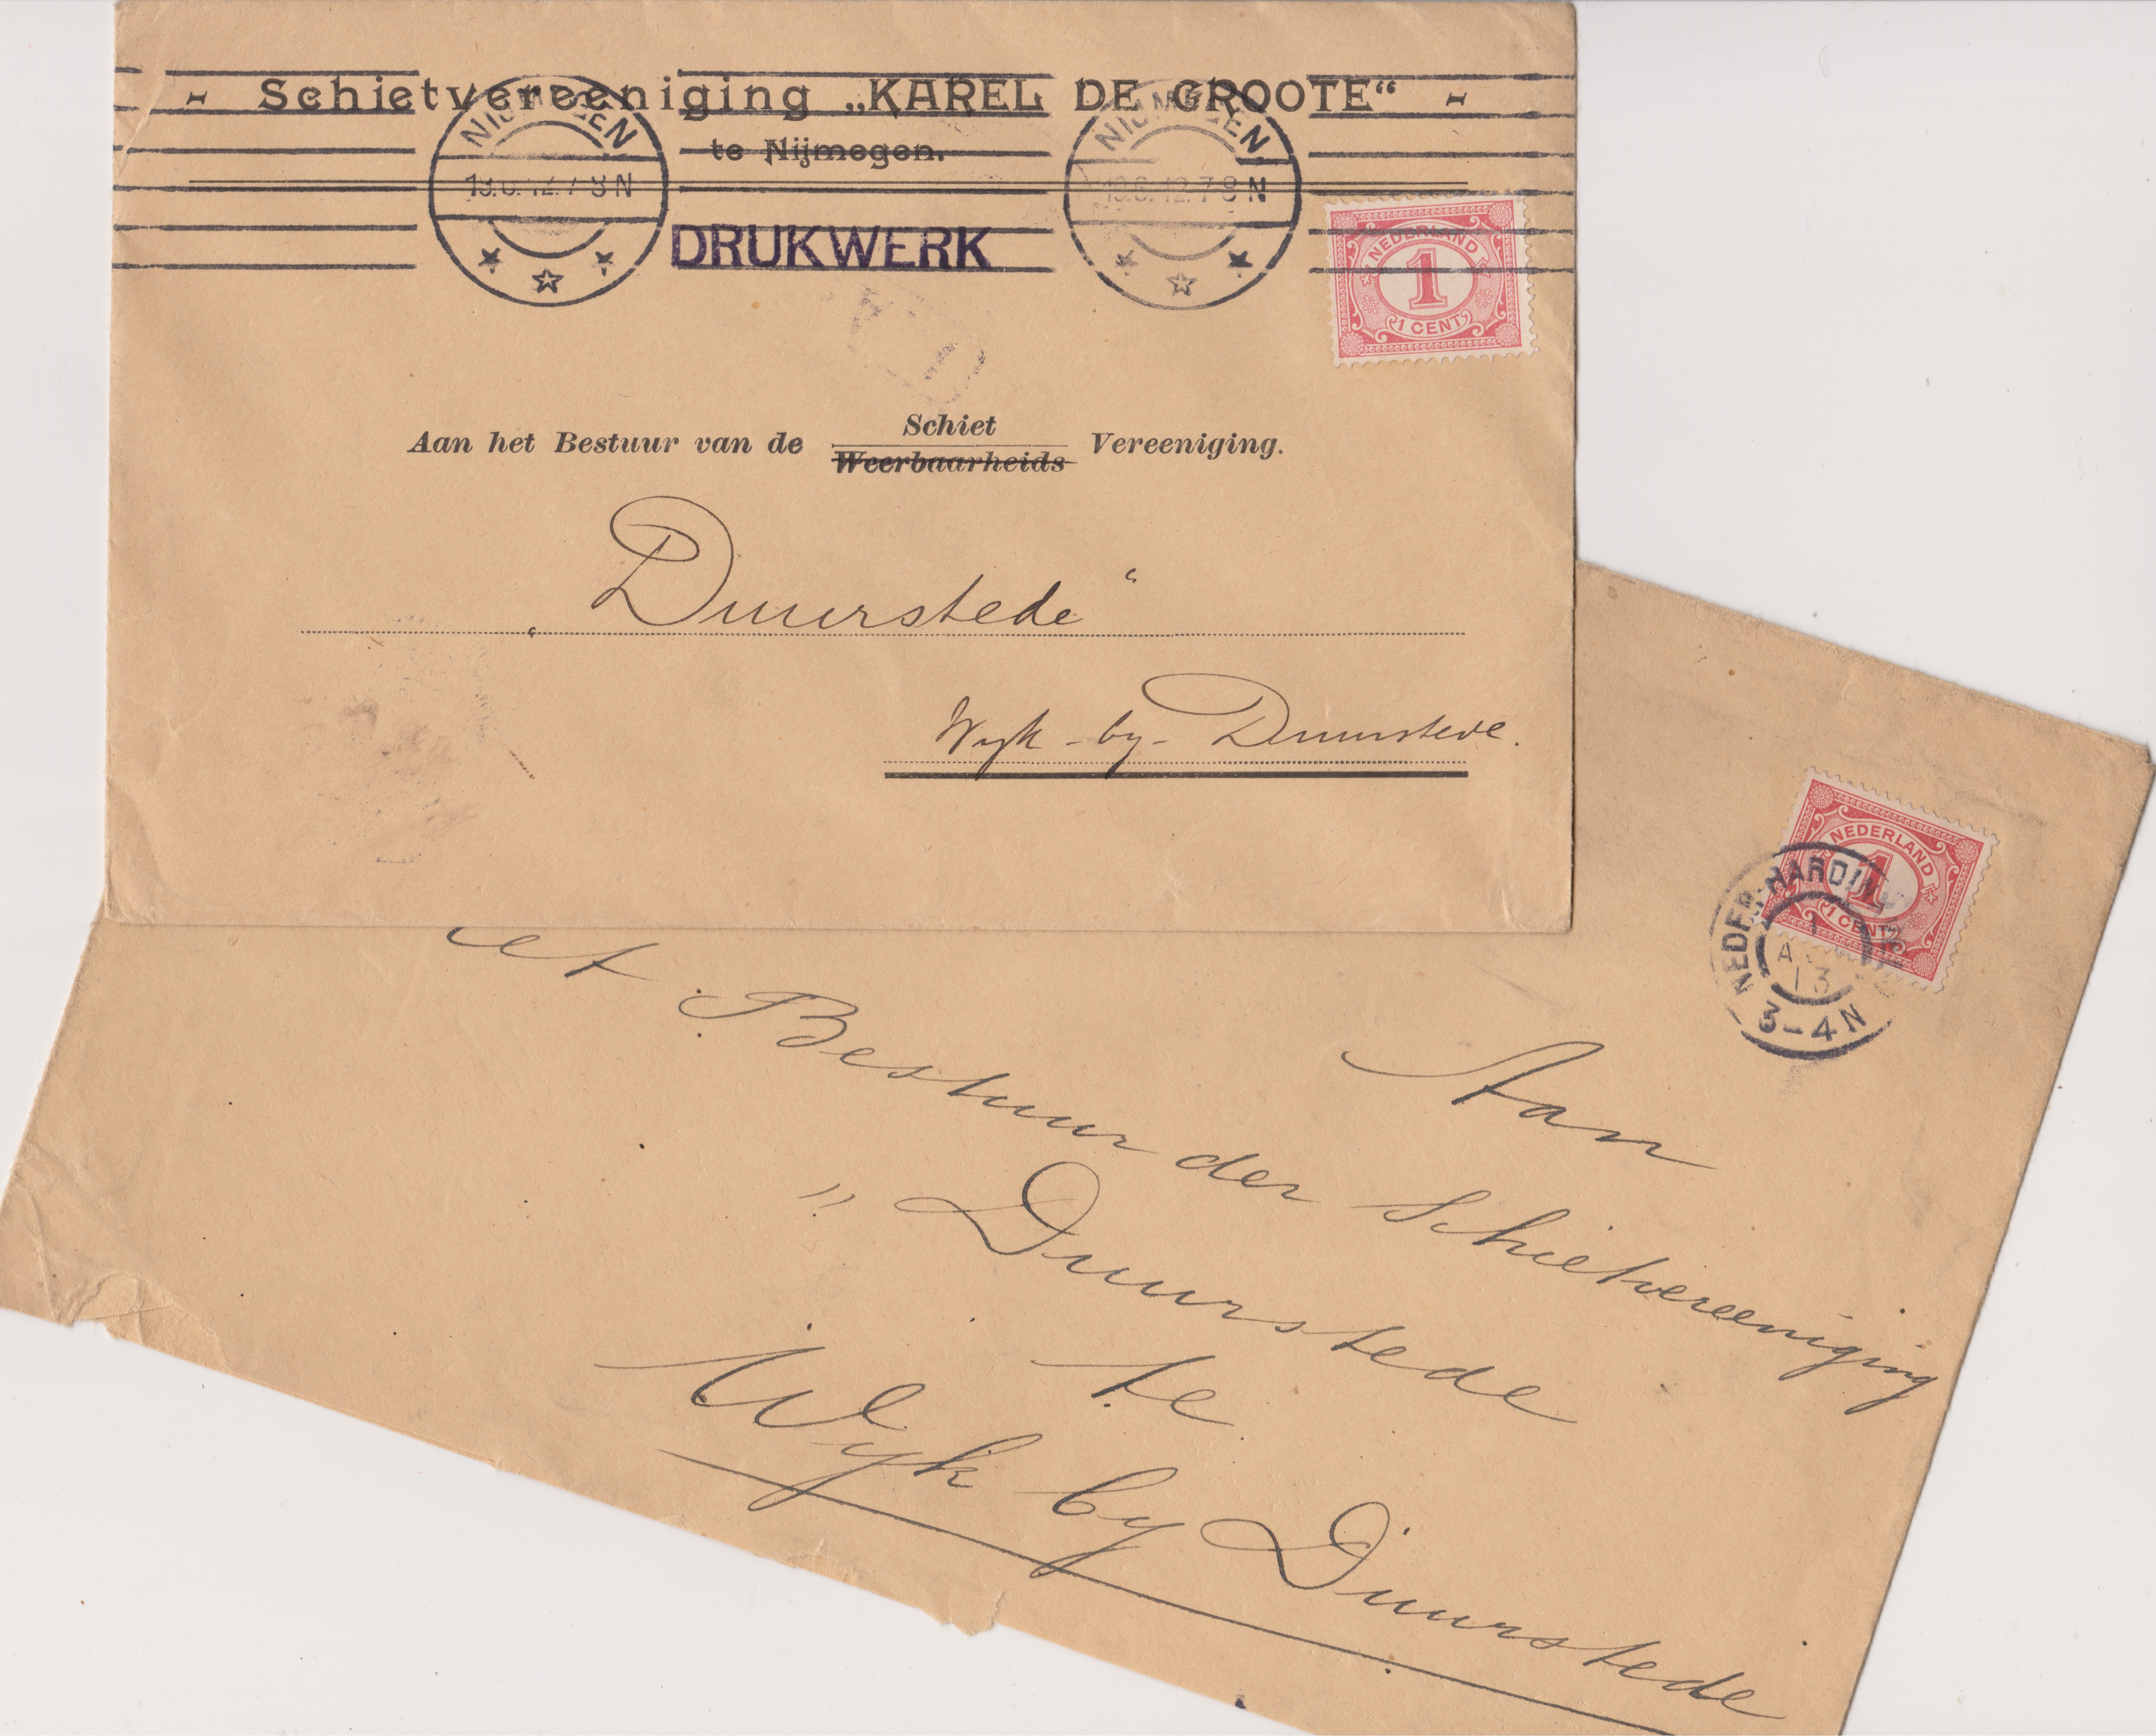 Schietvereeniging „KAREL DE GROOTE“
te Nijmegen.
NIJMEGEN
19.6.12.7-8N
NIJMEGEN
19.6.12.7-8N
DRUKWERK
NEDERLAND
1
1 CENT
Aan het Bestuur van de Schiet Vereeniging.
Weerbaarheids
„Duurstede“
Wyk-by-Duurstede.
NEDERLAND
1
1 CENT
NEDER-HARDIN
13
3-4N
Aan
et Bestuur der Schietvereeniging
" Duurstede
te
Wyk by Duurstede